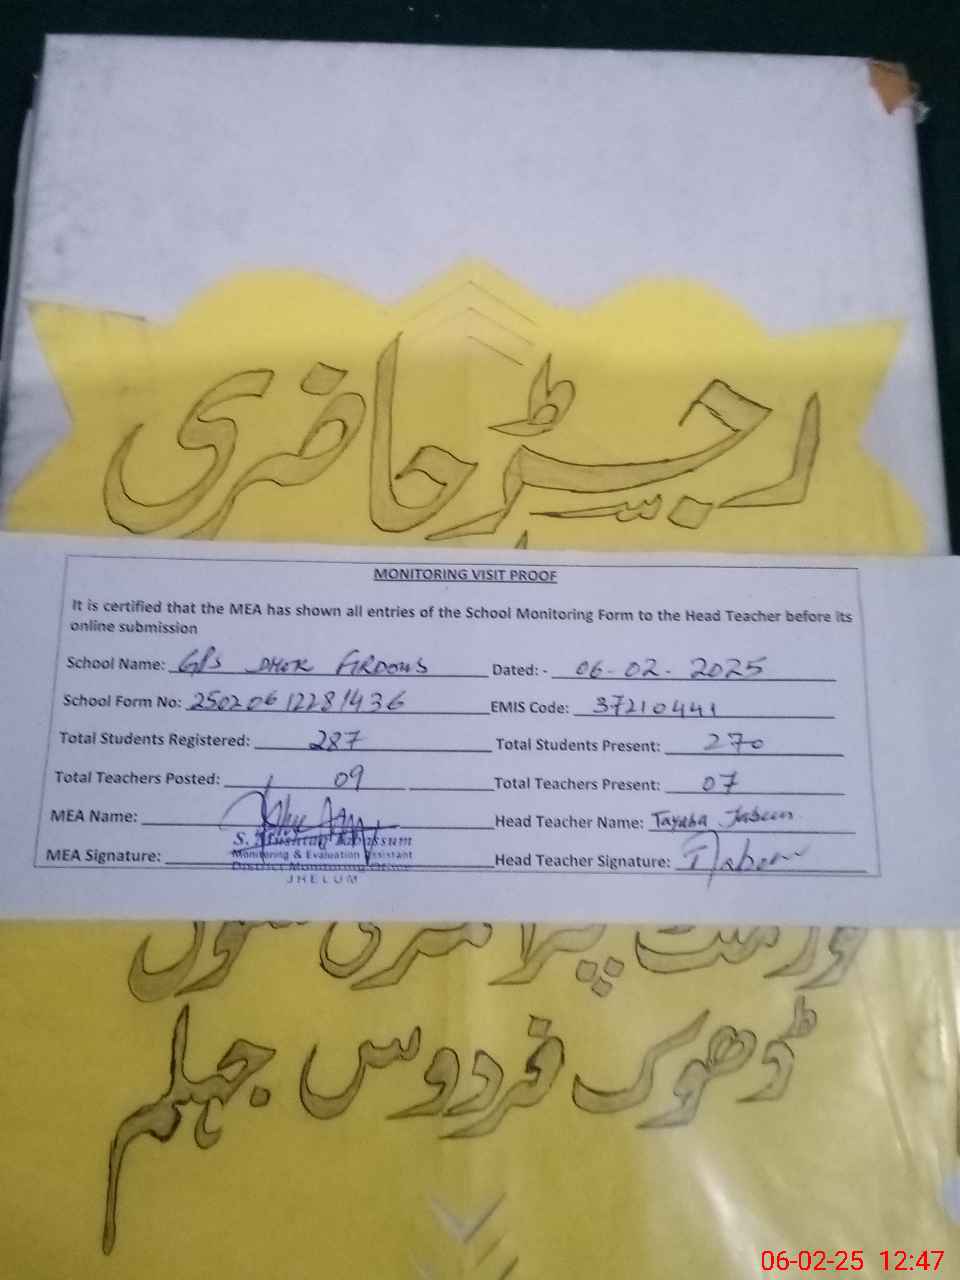 رجسٹر حاضری
MONITORING VISIT PROOF
It is certified that the MEA has shown all entries of the School Monitoring Form to the Head Teacher before its
online submission
School Name: GPS DHOK FIRDOUS Dated: - 06-02-2025
School Form No: 25020612281436 EMIS Code: 37210441
Total Students Registered: 287 Total Students Present: 270
Total Teachers Posted: 09 Total Teachers Present: 07
MEA Name: Head Teacher Name: Tayaba Jabeen
S. Mushtaq Tabassum
Monitoring & Evaluation Assistant
MEA Signature: Head Teacher Signature: T Jabeen
District Monitoring Office
JHELUM
گورنمنٹ پرائمری سکول
ڈھوک فردوس جہلم
06-02-25 12:47